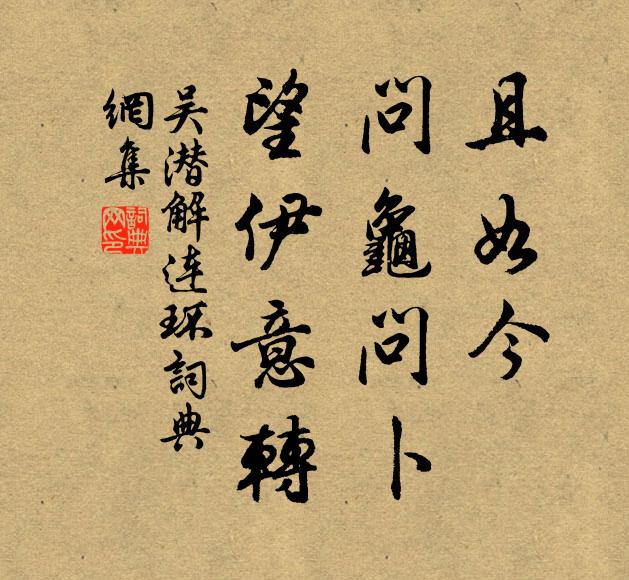 且如今
問龜問卜
望伊意轉
吴潜解连环詞典
網集
詞典
网印